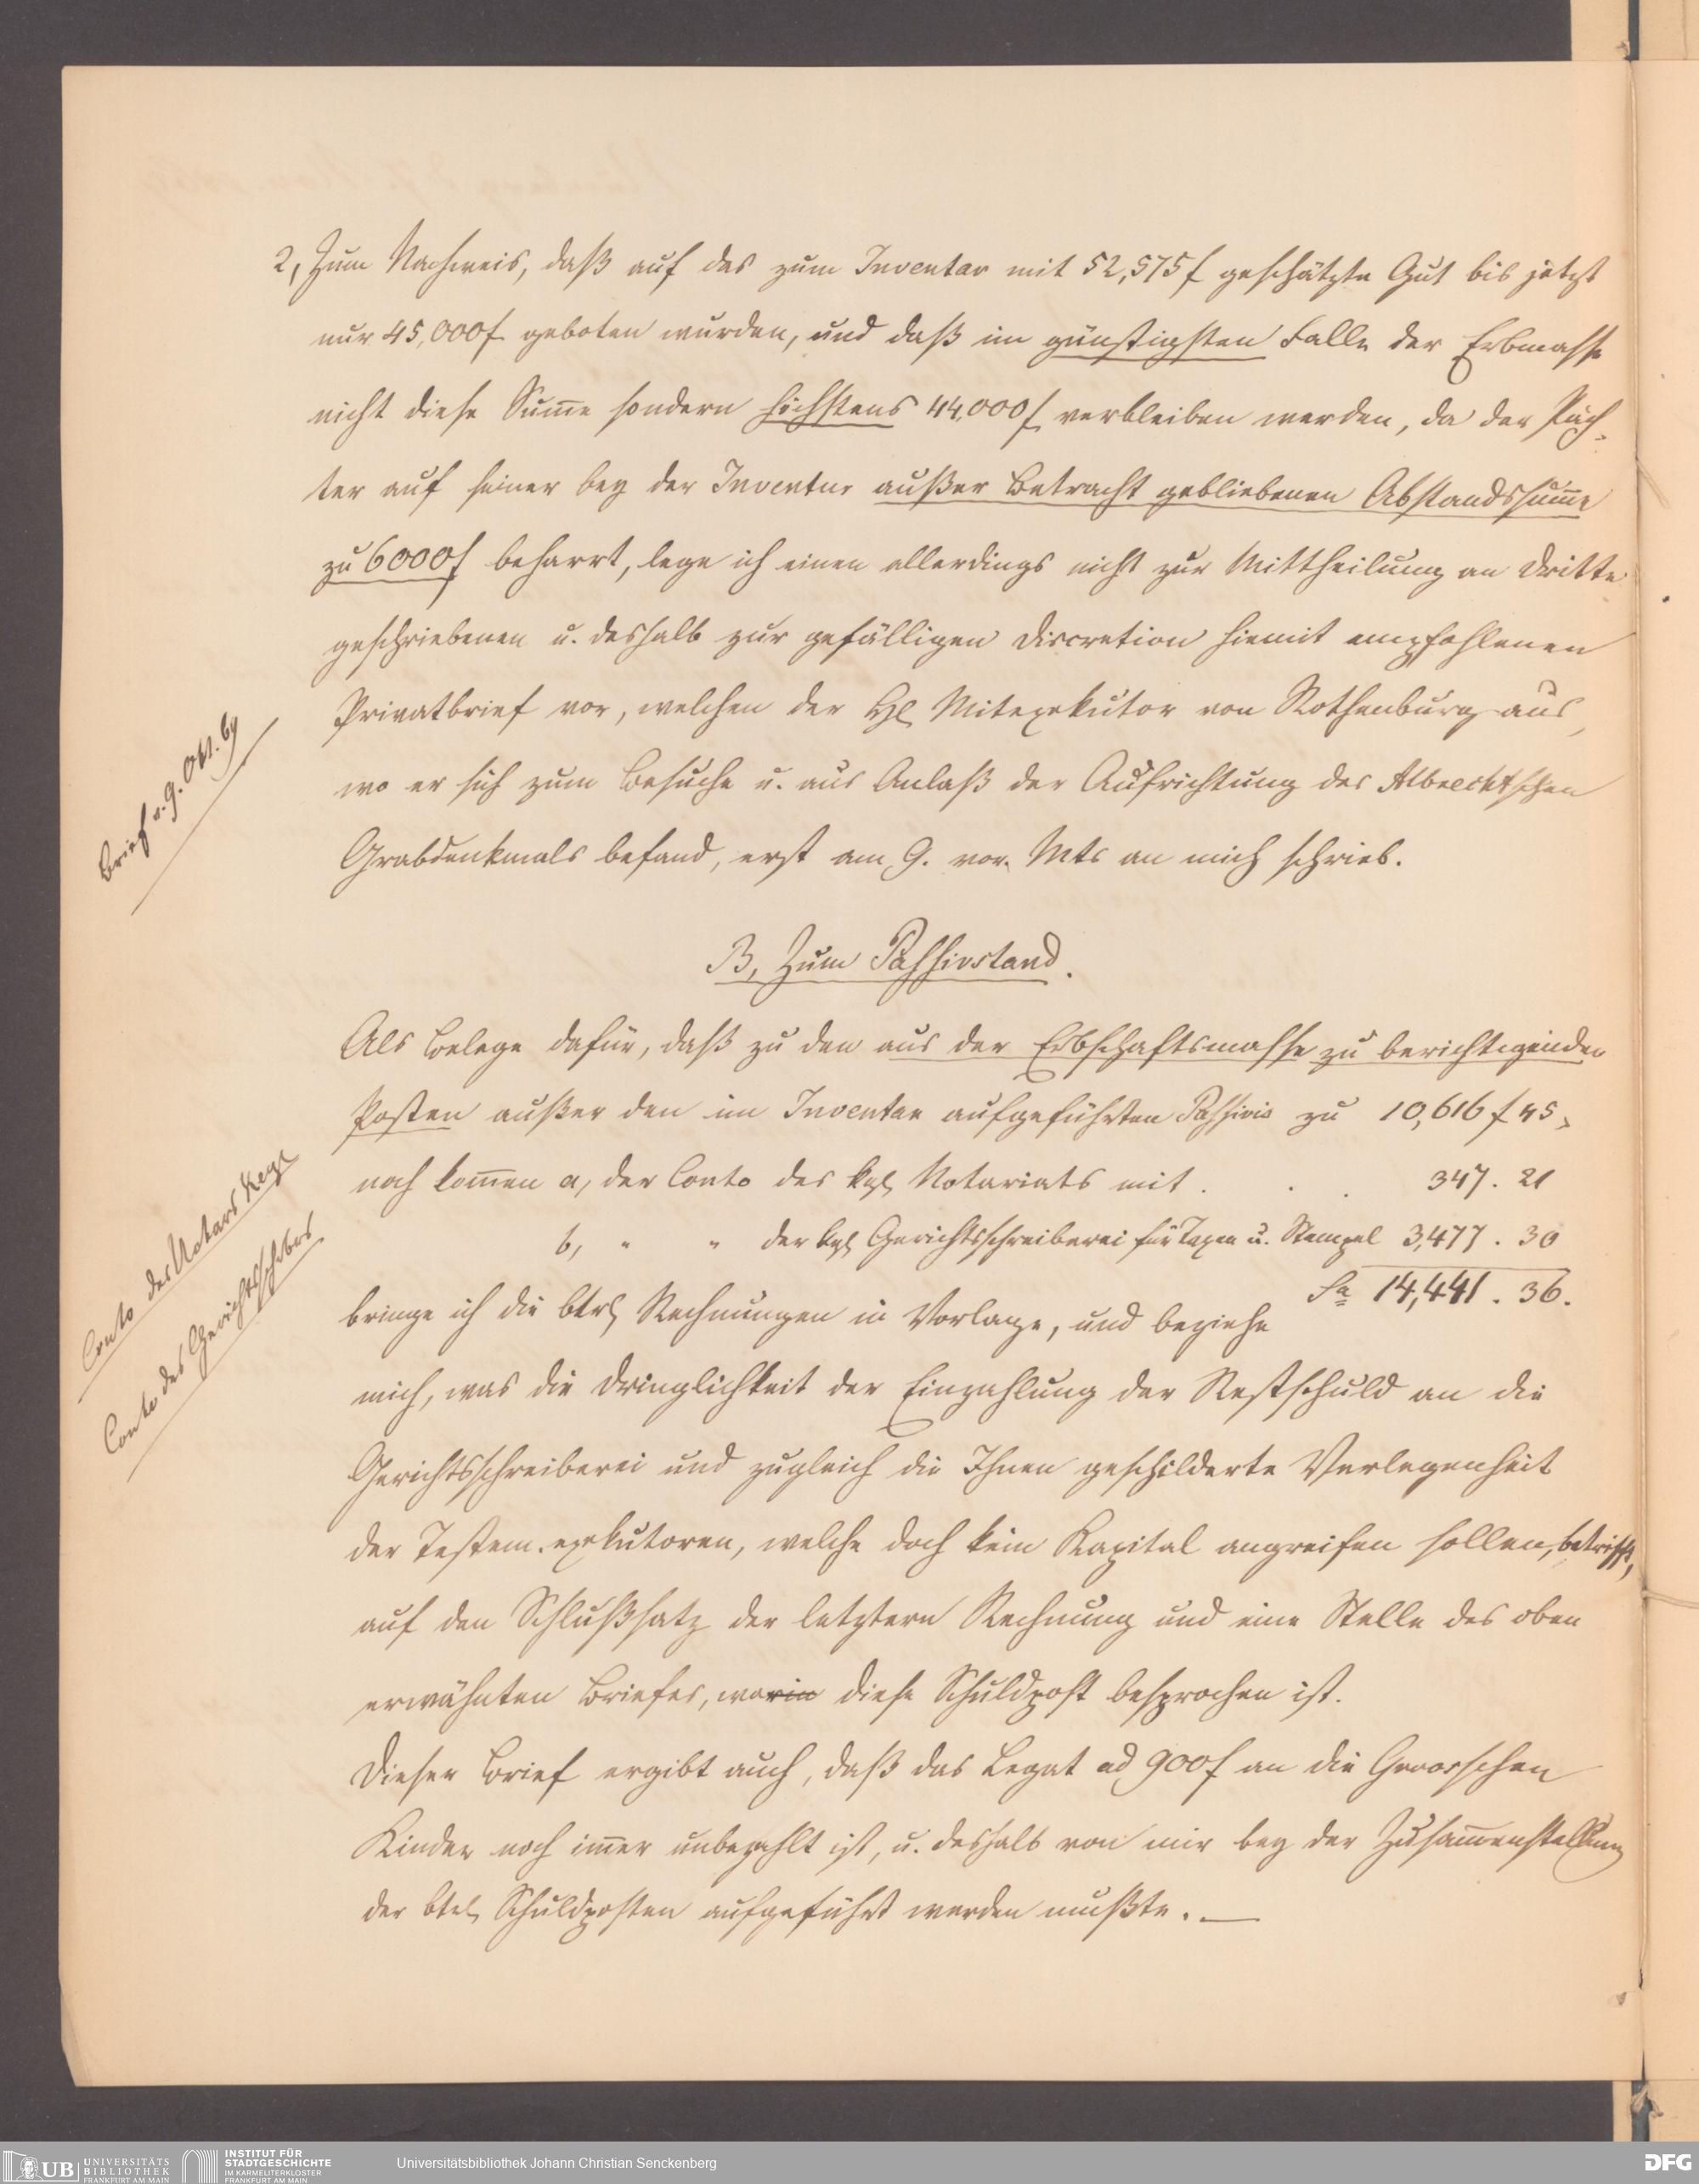 2, Zum Nachweis, daß auf das zum Inventar mit 52,575 f geschätzte Gut bis jetzt
nur 45,000 f geboten wurden, und daß im günstigsten Falle der Erbmasse
nicht diese Sum̅e sondern höchstens 44,000 f verbleiben werden, da der Päch-
ter auf seiner bey der Inventur außer Betracht gebliebenen Abstandssum̅e
zu 6000 f beharrt, lege ich einen allerdings nicht zur Mittheilung an Dritte
geschriebenen u. deshalb zur gefälligen Discretion hiemit empfohlenen
Privatbrief vor, welchen der Mitexekutor von Rothenburg aus,
wo er sich zum Besuche u. aus Anlaß der Aufrichtung des Albrecht'schen
Grabdenkmals befand, erst am 9. vor. Mts an mich schrieb.
Brief v. 9. Okt. 69
B, Zum Passivstand.
Als Belege dafür, daß zu den aus der Erbschaftsmasse zu berichtigenden
Posten außer den im Inventar aufgeführten Passivis zu 10,616 f 45,
noch kom̅en a, der Conto des kgl Notariats mit . . . 347. 21
b, " " der kgl Gerichtsschreiberei für Taxen u. Stempel 3,477. 30
Sa 14,441. 36.
Conto des Notars
Conto des Gerichtsschrbrs
bringe ich die btrl Rechnungen in Vorlage, und beziehe
mich, was die Dringlichkeit der Einzahlung der Restschuld an die
Gerichtsschreiberei und zugleich die Ihnen geschilderte Verlegenheit
der Testam. exekutoren, welche doch kein Kapital angreifen sollen, betrifft,
auf den Schlußsatz der letztern Rechnung und eine Stelle des oben
erwähnten Briefes, worin diese Schuldpost besprochen ist.
Dieser Brief ergibt auch, daß das Legat ad 900 f an die Groos'schen
Kinder noch im̅er unbezahlt ist, u. deshalb von mir bey der Zusam̅enstellung
der btrl Schuldposten aufgeführt werden mußte. —
UB UNIVERSITÄTS
BIBLIOTHEK
FRANKFURT AM MAIN
INSTITUT FÜR
STADTGESCHICHTE
IM KARMELITERKLOSTER
FRANKFURT AM MAIN
Universitätsbibliothek Johann Christian Senckenberg
DFG